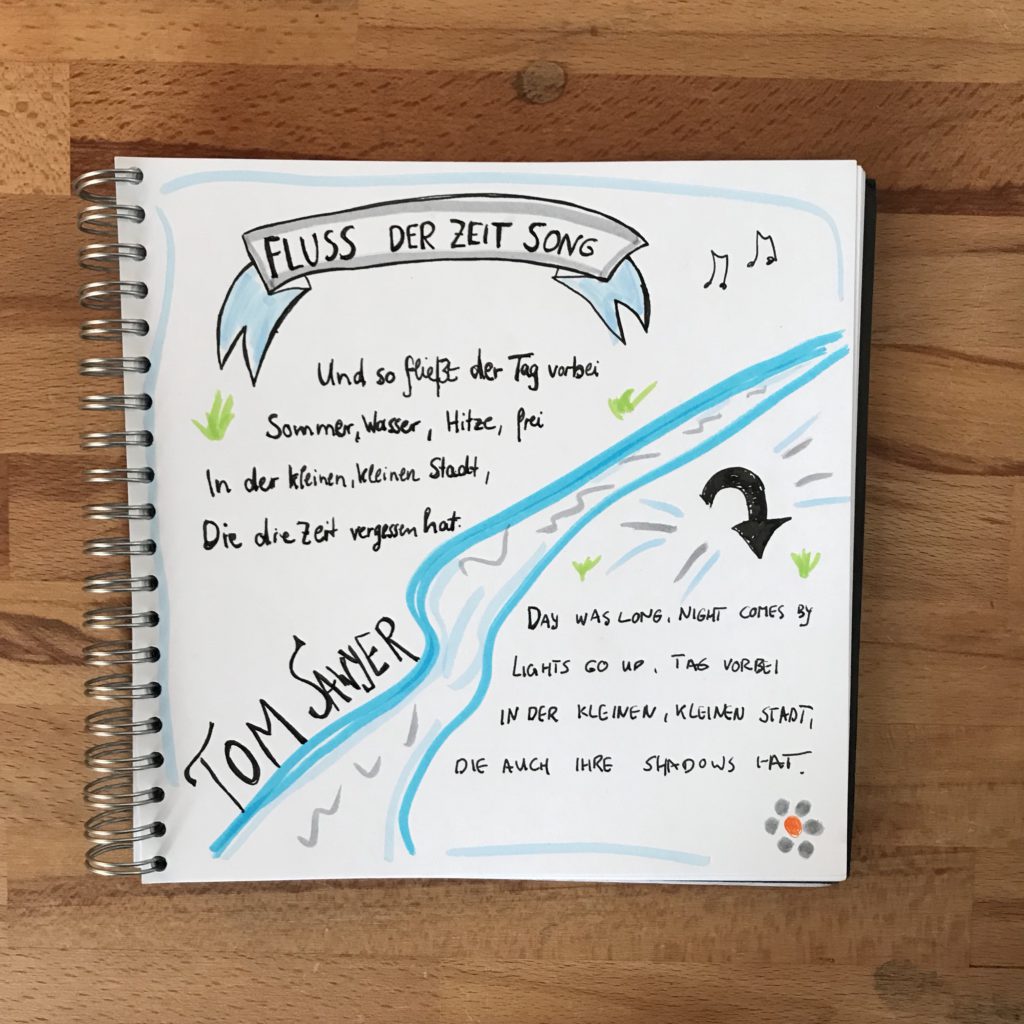 FLUSS DER ZEIT SONG
Und so fließt der Tag vorbei
Sommer, Wasser, Hitze, frei
In der kleinen, kleinen Stadt,
Die die Zeit vergessen hat.
TOM SAWYER
DAY WAS LONG, NIGHT COMES BY
LIGHTS GO UP, TAG VORBEI
IN DER KLEINEN, KLEINEN STADT,
DIE AUCH IHRE SHADOWS HAT.